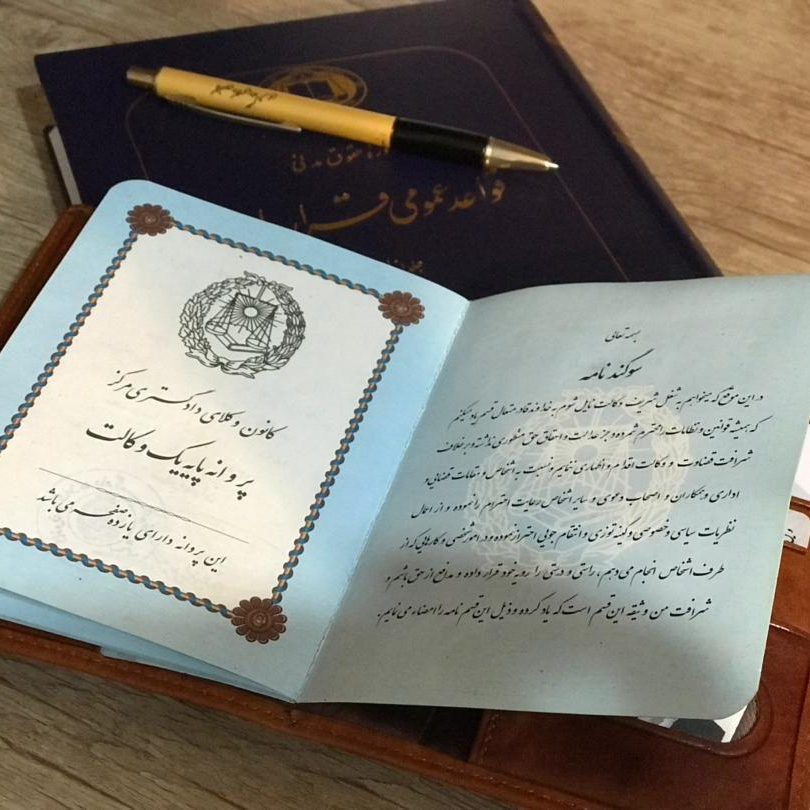 حقوق مدنی
قواعد عمومی
کانون وکلای دادگستری مرکز
پروانه پایه یک وکالت
این پروانه دارای یازده صفحه می باشد
بسمه تعالی
سوگند نامه
در این موقع که میخواهم به شغل شریف وکالت نایل شوم به خداوند قادر متعال قسم یاد میکنم
که همیشه قوانین و نظامات را محترم شمرده و جز عدالت و احقاق حق منظوری نداشته و برخلاف
شرافت قضاوت و وکالت اقدام و اظهاری ننمایم و نسبت به اشخاص و مقامات قضائی و
اداری و همکاران و اصحاب دعوی و سایر اشخاص رعایت احترام را نموده و از اعمال
نظریات سیاسی و خصوصی و کینه توزی و انتقام جویی احتراز نموده و در امور شخصی و کارهایی که از
طرف اشخاص انجام می دهم ، راستی و درستی را رویه خود قرار داده و مدافع از حق باشم و
شرافت من وثیقه این قسم است که یاد کرده و ذیل این قسم نامه را امضاء می نمایم.